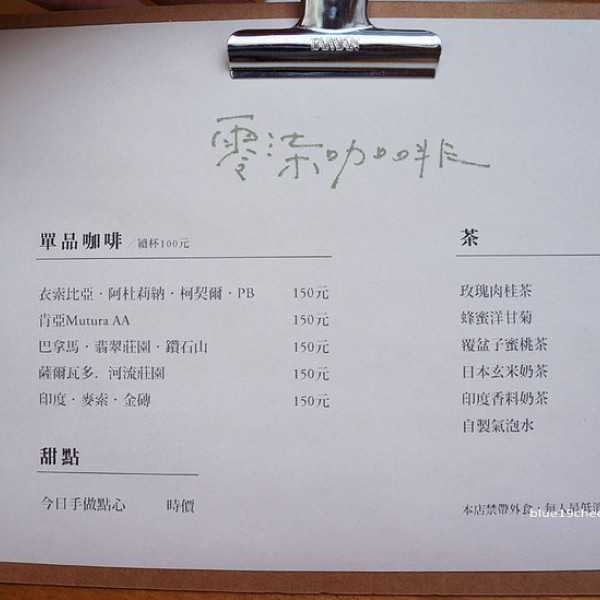 TAIWAN
零柒咖啡
單品咖啡／續杯100元
衣索比亞・阿杜莉納・柯契爾・PB 150元
肯亞Mutura AA 150元
巴拿馬・翡翠莊園・鑽石山 150元
薩爾瓦多．河流莊園 150元
印度・麥索・金磚 150元
甜點
今日手做點心 時價
茶
玫瑰肉桂茶
蜂蜜洋甘菊
覆盆子蜜桃茶
日本玄米奶茶
印度香料奶茶
自製氣泡水
本店禁帶外食・每人最低消
blue19chee